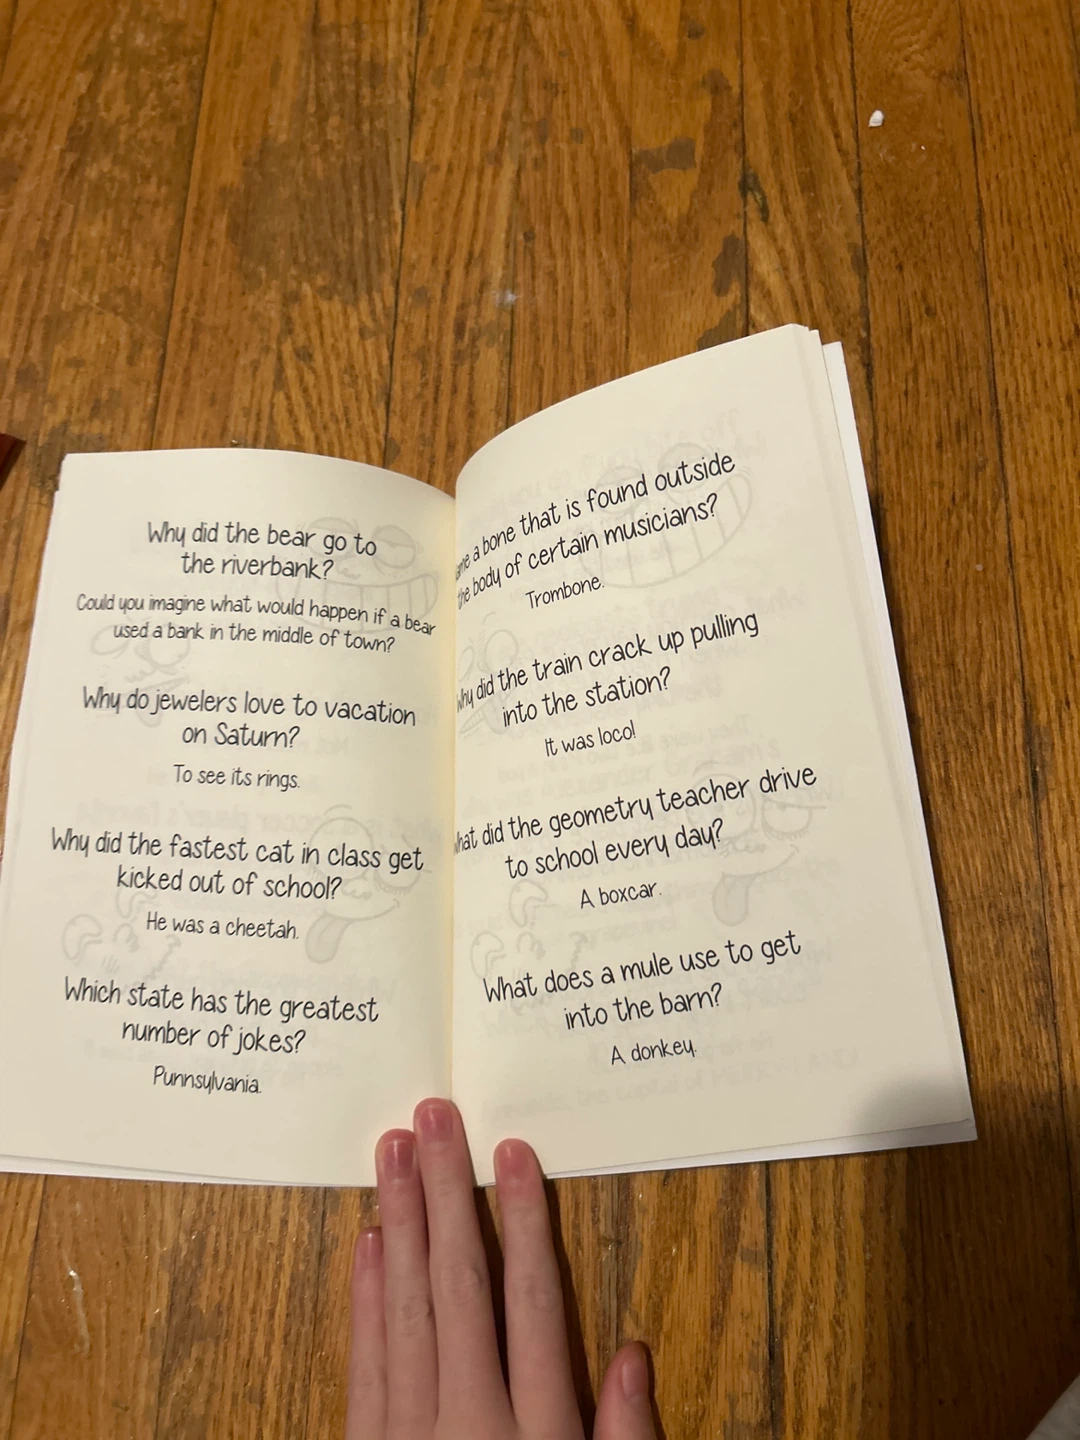 Why did the bear go to
the riverbank?
Could you imagine what would happen if a bear
used a bank in the middle of town?
Why do jewelers love to vacation
on Saturn?
To see its rings.
Why did the fastest cat in class get
kicked out of school?
He was a cheetah.
Which state has the greatest
number of jokes?
Punnsylvania.
a bone that is found outside
the body of certain musicians?
Trombone.
Why did the train crack up pulling
into the station?
It was loco!
What did the geometry teacher drive
to school every day?
A boxcar.
What does a mule use to get
into the barn?
A donkey.